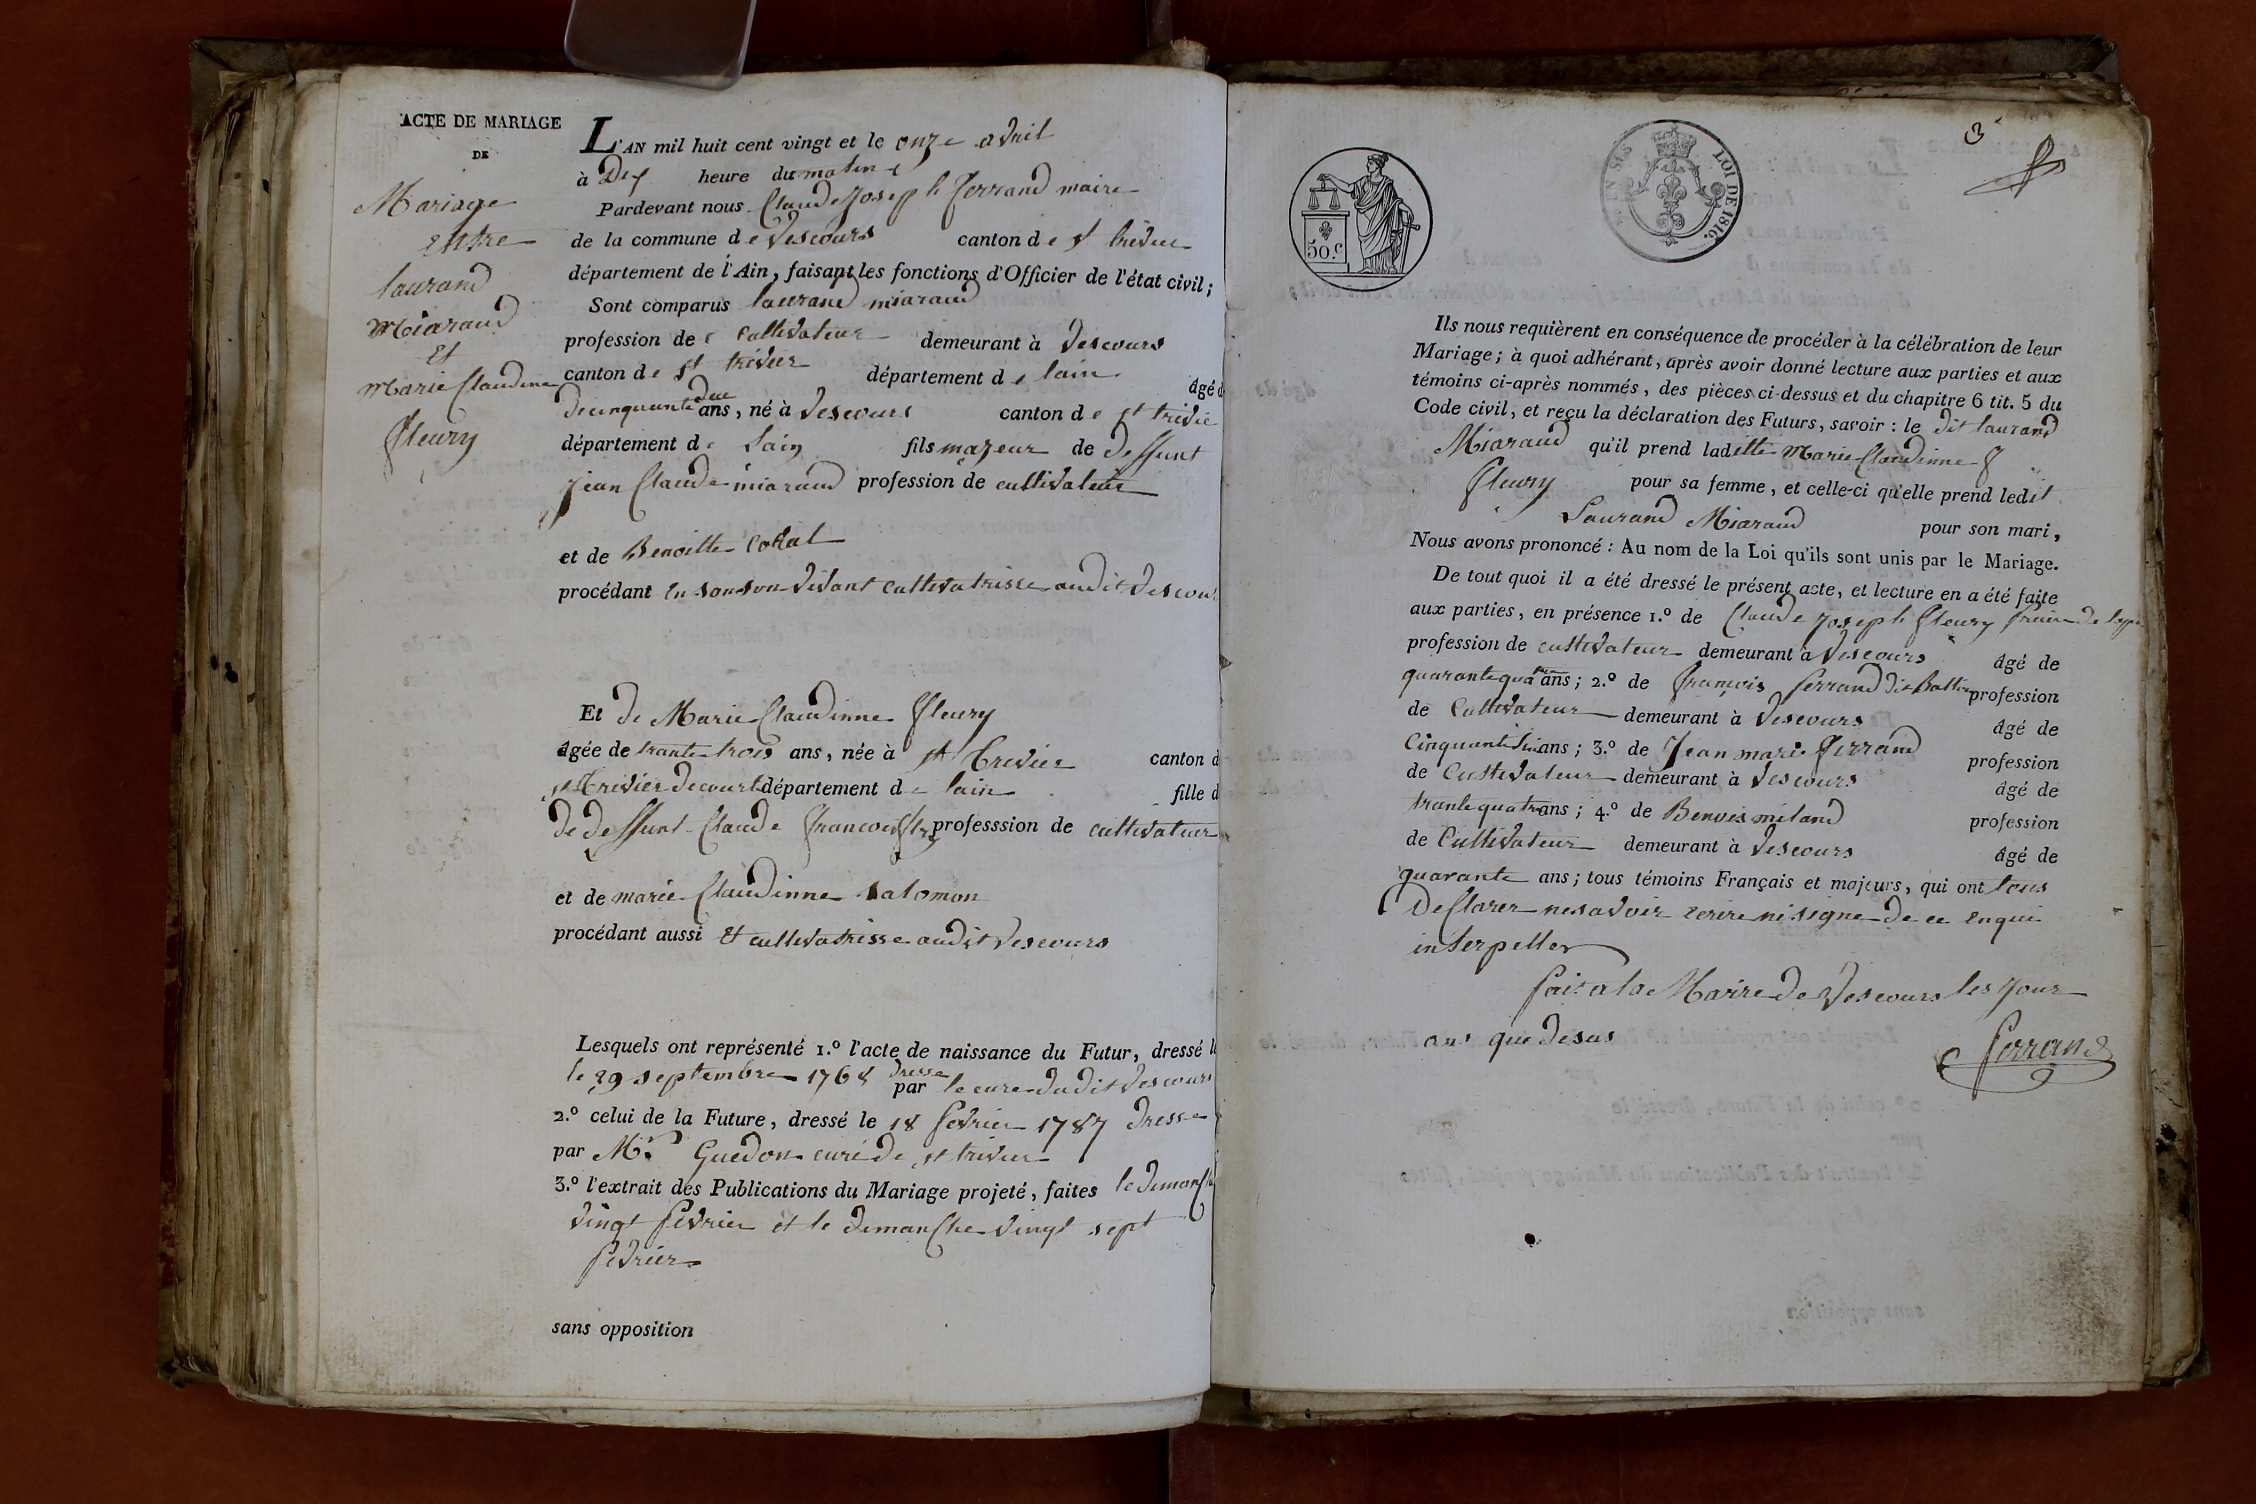 ACTE DE MARIAGE
DE
Mariage
entre
laurand
Miaraud
Et
Marie Claudine
fleury
L'AN mil huit cent vingt et le onze avril
à Dey heure du matin
Pardevant nous Claude Joseph ferrand maire
de la commune de Vescours canton de st trivier
département de l'Ain, faisant les fonctions d'Officier de l'état civil;
Sont comparus laurand miaraud
profession de cultivateur demeurant à Vescours
canton de st trivier département de lain âgé d
De cinquante deu ans, né à Vescours canton de st trivie
département de Lain fils majeur de deffunt
jean Claude miaraud profession de cultivateur
et de Benoitte
procédant en son vivant cultivatrisse audit Vescour
Et de Marie Claudinne fleury
âgée de trante trois ans, née à st Trevier canton d
st Trevier decourt département de lain fille d
de deffunt Claude francois profession de cultivateur
et de marie Claudinne salomon
procédant aussi Et cultivatrisse audit Vescours
Lesquels ont représenté 1.º l'acte de naissance du Futur, dressé l
le 29 septembre 1768 dresse par le cure dudit Vescours
2.º celui de la Future, dressé le 18 fevrier 1787 dresse
par Mr. Guedon curé de st trivier
3.º l'extrait des Publications du Mariage projeté, faites le dimanche
vingt fevrier et le dimanche vingt sept
fevrier
sans opposition
3
50.c
LOI DE 1816.
Ils nous requièrent en conséquence de procéder à la célébration de leur
Mariage; à quoi adhérant, après avoir donné lecture aux parties et aux
témoins ci-après nommés, des pièces ci-dessus et du chapitre 6 tit. 5 du
Code civil, et reçu la déclaration des Futurs, savoir : le dit laurand
Miaraud qu'il prend ladette Marie Claudinne
fleury pour sa femme, et celle-ci qu'elle prend ledit
Laurand Miaraud pour son mari,
Nous avons prononcé : Au nom de la Loi qu'ils sont unis par le Mariage.
De tout quoi il a été dressé le présent acte, et lecture en a été faite
aux parties, en présence 1.º de Claude joseph fleury
profession de cultivateur demeurant à Vescours âgé de
quarante quatre ans; 2.º de françois ferrand dit profession
de Cultivateur demeurant à Vescours âgé de
Cinquante ans; 3.º de Jean marie ferrand profession
de Cultivateur demeurant à Vescours âgé de
trante quatre ans; 4.º de Benois miland profession
de Cultivateur demeurant à Vescours âgé de
quarante ans; tous témoins Français et majeurs, qui ont tous
Declarer ne savoir ecrire ni signe de ce enquis
interpeller
fait a la Mairie de Vescours les jour
ans que desus
ferrand